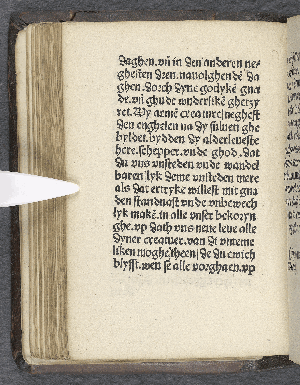 daghen. vn̄ in den anderen nes-
ghesten dren. navolghen dē da
ghen. dorch dyne godykē gna
de. vn̄ ghude wnderlikē ghetzy
ret. Wy armē creaturē neghest
den enghelen na dy sulven ghe
byldet. bydden dy alderlevesthe
here. schepper. vnde ghod. Dat
du vns vnsteden vnde wandel
baren lyk deme vnsteden mere
als dat ertryke willest mit gna
den standnast vnde vnbewech
lyk makē. in alle vnser bekoryn
ghe. vp dath vns neue leue alle
dyner creatuer. van di vmme
liken moghe theen / de du ewich
blyffst. wen se alle vorghaen. vp